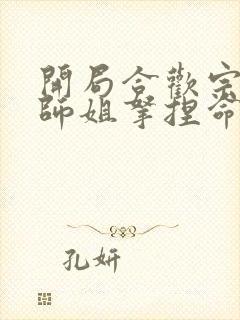 開局合歡宗
師姐拏捏命
孔妍